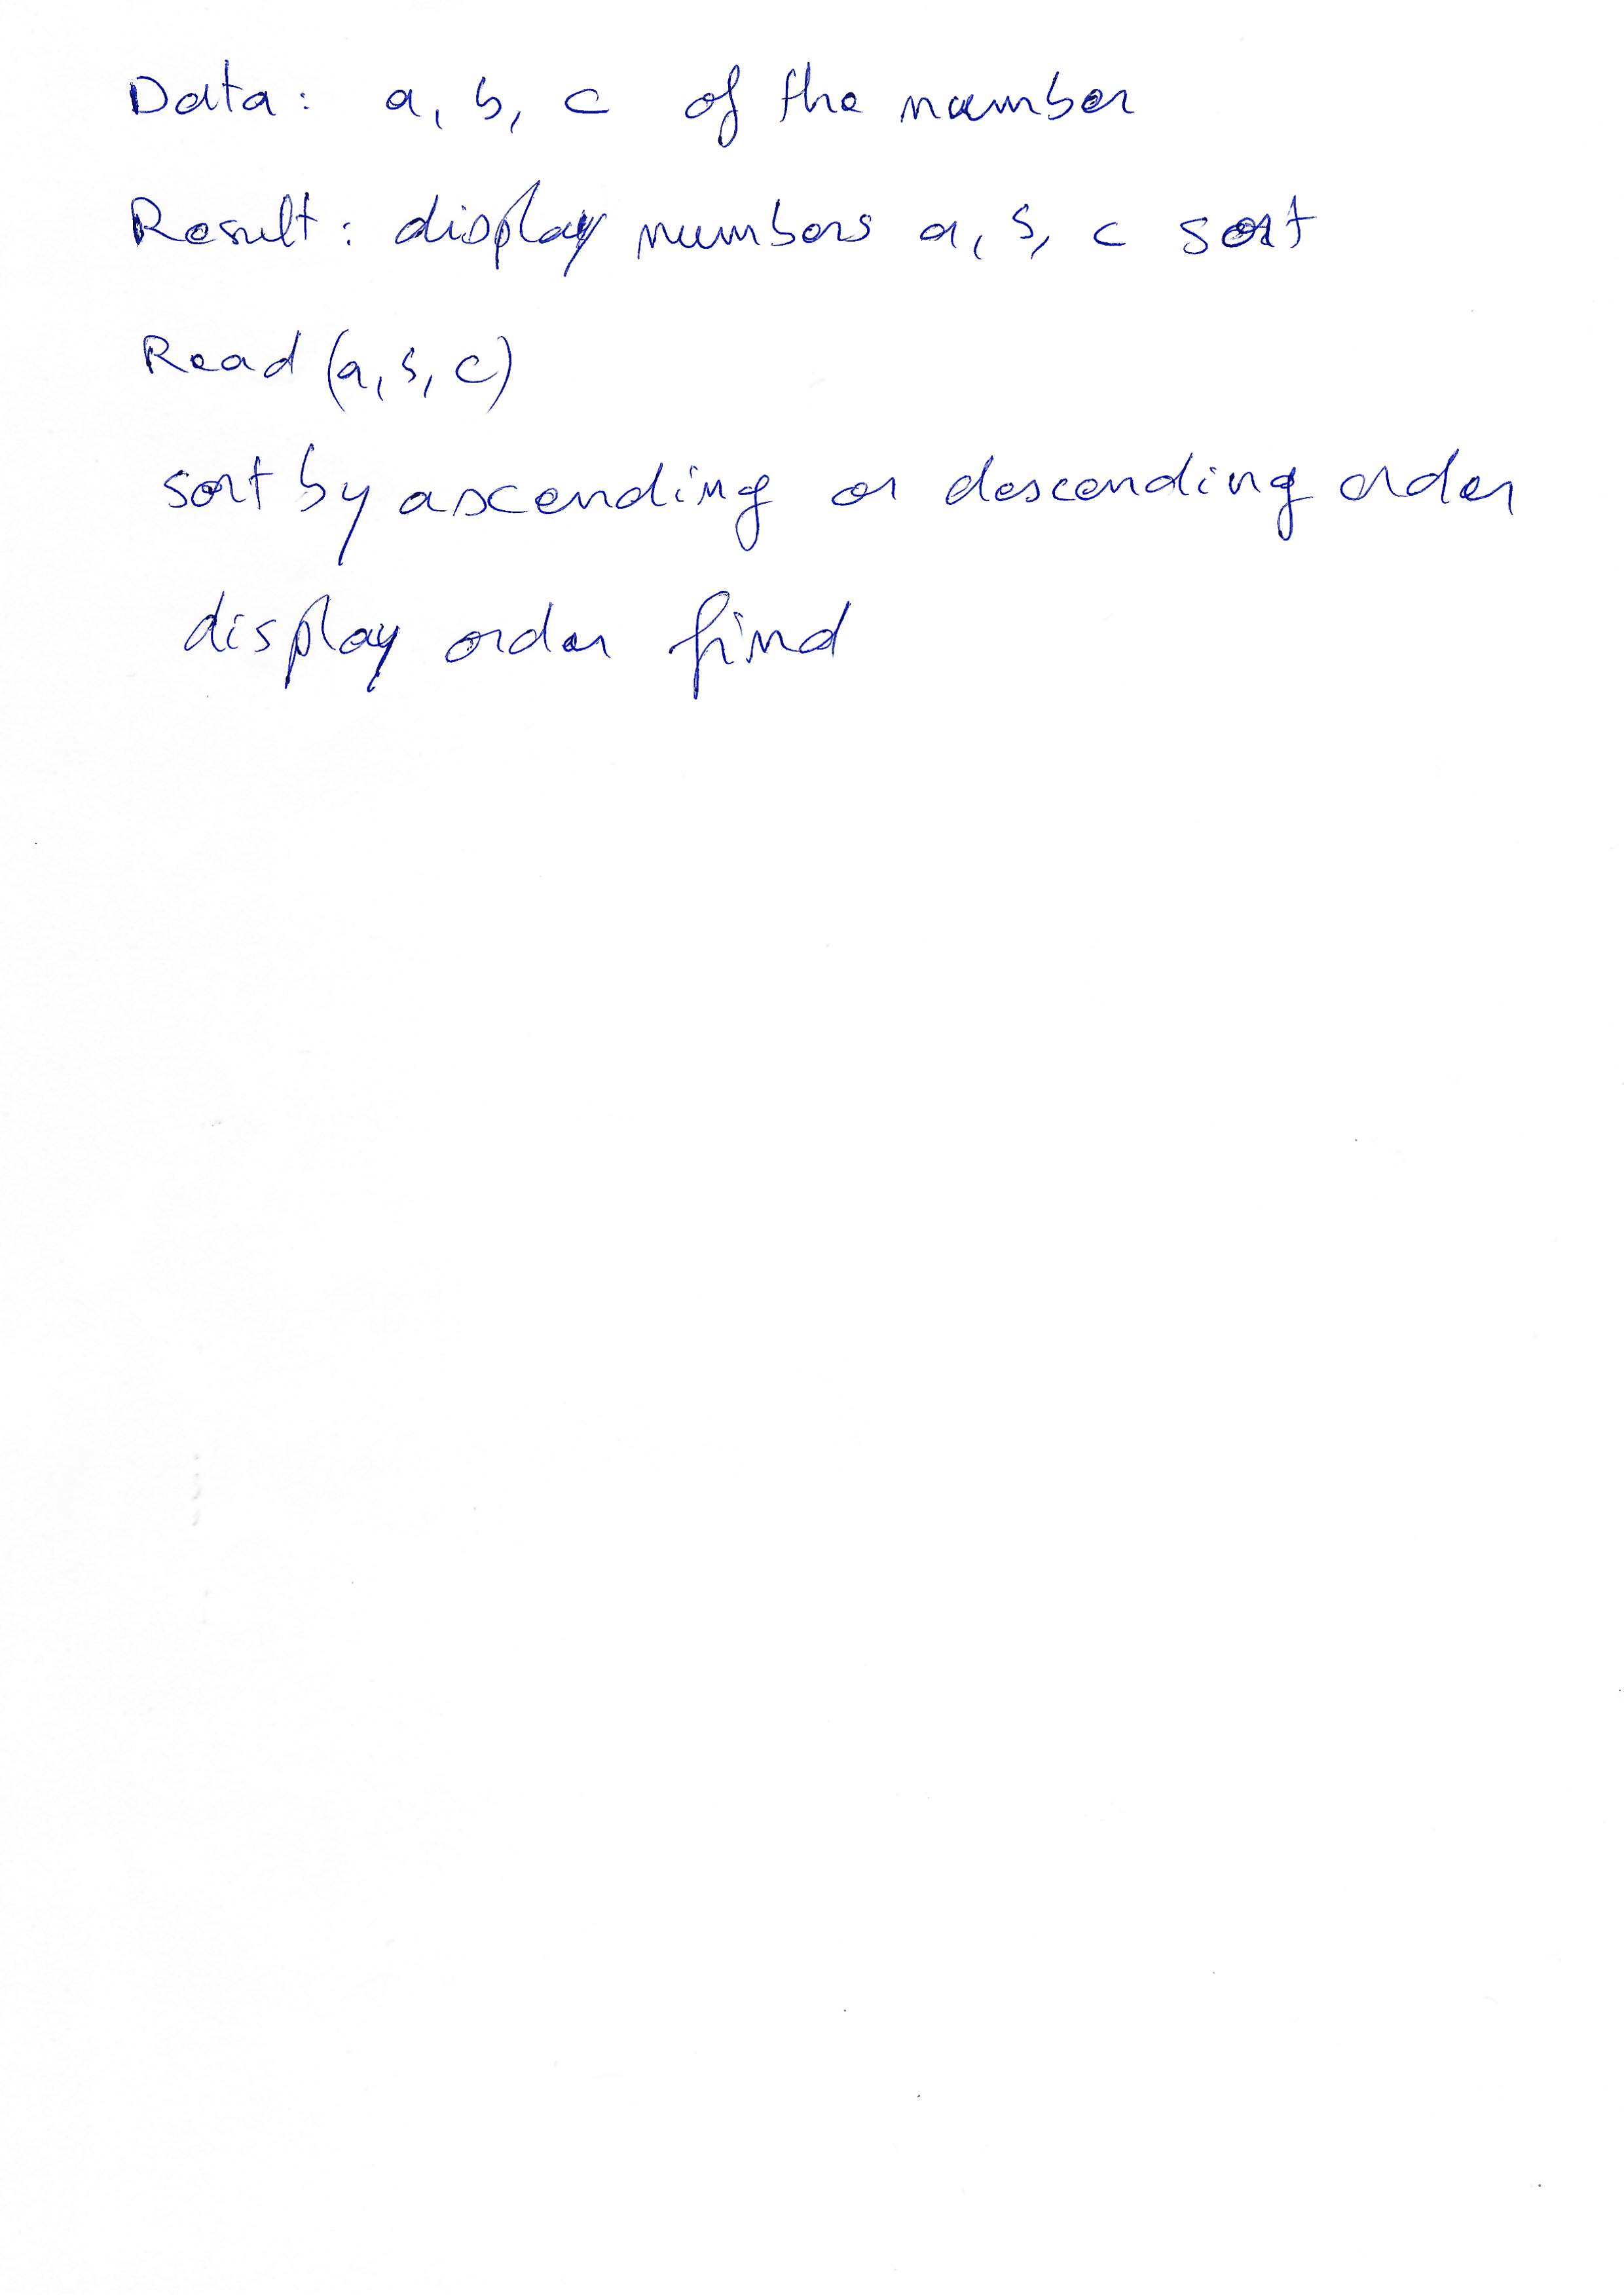 Data: a, b, c of the number
Result: display numbers a, b, c sort
Read (a, b, c)
sort by ascending or descending order
display order find